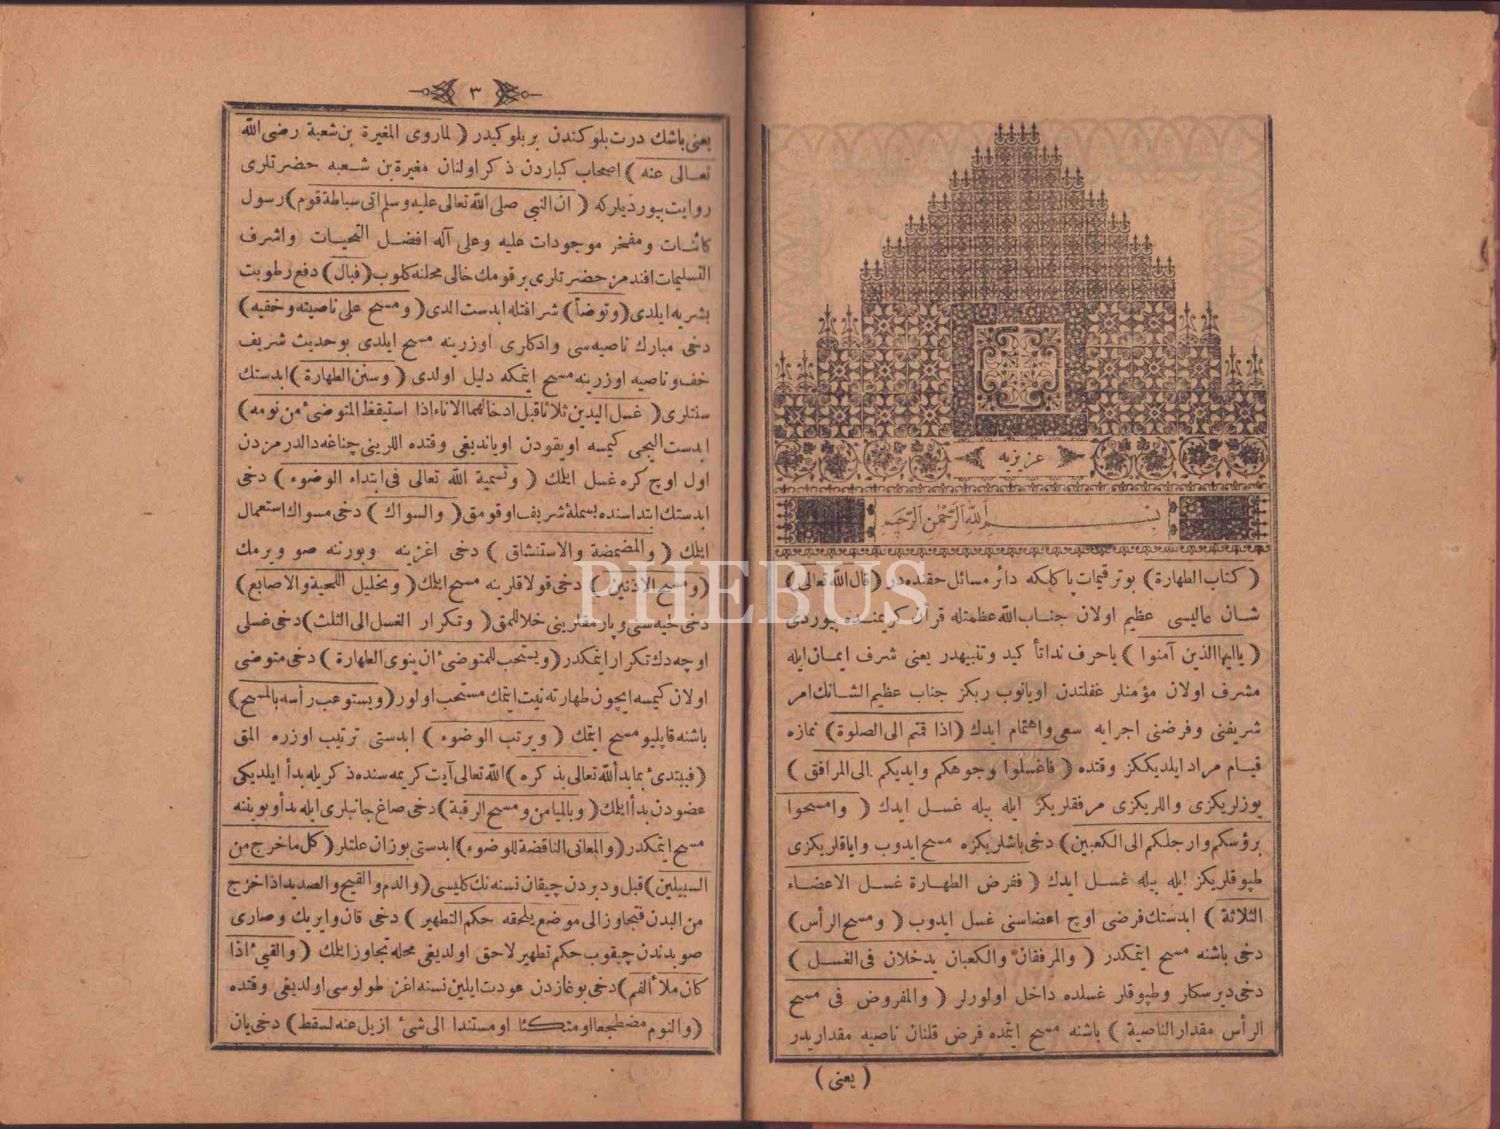 عزيزيه
بسم الله الرحمن الرحيم
( كتاب الطهارة ) بو ترقيمات پاكلكه دائر مسائل حقنده در ( قال الله تعالى )
شان عاليسى عظيم اولان جناب الله عظمتله قرآن كريمنده بيوردى
( ياايها الذين آمنوا ) يا حرف ندا تأكيد و تنبيهدر يعنى شرف ايمان ايله
مشرف اولان مؤمنلر غفلتدن اويانوب ربكز جناب عظيم الشانك امر
شريفنى و فرضنى اجرايه سعى و اهتمام ايدك ( اذا قمتم الى الصلوة ) نمازه
قيام مراد ايلديككز وقتده ( فاغسلوا وجوهكم وايديكم الى المرافق )
يوزلريكزى واللريكزى مرفقلريكز ايله بيله غسل ايدك ( وامسحوا
برؤسكم وارجلكم الى الكعبين ) دخى باشلريكزه مسح ايدوب واياقلريكزى
طپوقلريكز ايله بيله غسل ايدك ( ففرض الطهارة غسل الاعضاء
الثلاثة ) ابدستك فرضى اوچ اعضاسنى غسل ايدوب ( ومسح الرأس )
دخى باشنه مسح ايتمكدر ( والمرفقان والكعبان يدخلان فى الغسل )
دخى ديرسكلر وطپوقلر غسلده داخل اولورلر ( والمفروض فى مسح
الرأس مقدار الناصية ) باشنه مسح ايتمده فرض قلنان ناصيه مقداريدر
( يعنى )
٣
يعنى باشك درت بلوكندن بر بلوكيدر ( لماروى المغيرة بن شعبة رضى الله
تعالى عنه ) اصحاب كباردن ذكر اولنان مغيرة بن شعبه حضرتلرى
روايت بيورديلركه ( ان النبى صلى الله تعالى عليه وسلم اتى سباطة قوم ) رسول
كائنات ومفخر موجودات عليه وعلى آله افضل التحيات واشرف
التسليمات افندمز حضرتلرى بر قومك خالى محلنه كلوب ( فبال ) دفع رطوبت
بشريه ايلدى ( وتوضأ ) شرافتله ابدست الدى ( ومسح على ناصيته وخفيه )
دخى مبارك ناصيه سى وادكلرى اوزرينه مسح ايلدى بو حديث شريف
خف وناصيه اوزرينه مسح ايتمكه دليل اولدى ( وسنن الطهارة ) ابدستك
سنتلرى ( غسل اليدين ثلاثا قبل ادخالهما الاناء اذا استيقظ المتوضئ من نومه )
ابدست اليجى كيمسه اويقودن اوياندیغى وقتده اللرينى چناغه دالدرمزدن
اول اوچ كره غسل ايلمك ( وتسمية الله تعالى فى ابتداء الوضوء ) دخى
ابدستك ابتداسنده بسملهٔ شريف اوقومق ( والسواك ) دخى مسواك استعمال
ايلمك ( والمضمضة والاستنشاق ) دخى اغزينه وبورننه صو ويرمك
( ومسح الاذنين ) دخى قولاقلرينه مسح ايلمك ( وتخليل اللحية والاصابع )
دخى لحيه سى وپارمقلرينى خلاللمق ( وتكرار الغسل الى الثلث ) دخى غسلى
اوچه دك تكرار ايتمكدر ( ويستحب للمتوضئ ان ينوى الطهارة ) دخى متوضى
اولان كيمسه ايچون طهارته نيت ايتمك مستحب اولور ( ويستوعب رأسه بالمسح )
باشنه قاپليو مسح ايتمك ( ويرتب الوضوء ) ابدستى ترتيب اوزره المق
( فيبتدئ بما بدأ الله تعالى بذكره ) الله تعالى آيت كريمه سنده ذكريله بدأ ايلديكى
عضودن بدأ ايلمك ( وبالميامن ومسح الرقبة ) دخى صاغ جانبلرى ايله بدأ وبويننه
مسح ايتمكدر ( والمعانى الناقضة للوضوء ) ابدستى بوزان علتلر ( كل ما خرج من
السبيلين ) قبل ودبردن چيقان نسنه نك كليسى ( والدم والقيح والصديد اذا خرج
من البدن فتجاوز الى موضع يلحقه حكم التطهير ) دخى قان وايريك وصارى
صو بدندن چيقوب حكم تطهير لاحق اولديغى محله تجاوز ايلمك ( والقئ اذا
كان ملأ الفم ) دخى بوغازدن عودت ايلين نسنه اغز طولوسى اولديغى وقتده
( والنوم مضطجعا او متكئا او مستندا الى شئ ازيل عنه لسقط ) دخى يان
PHEBUS